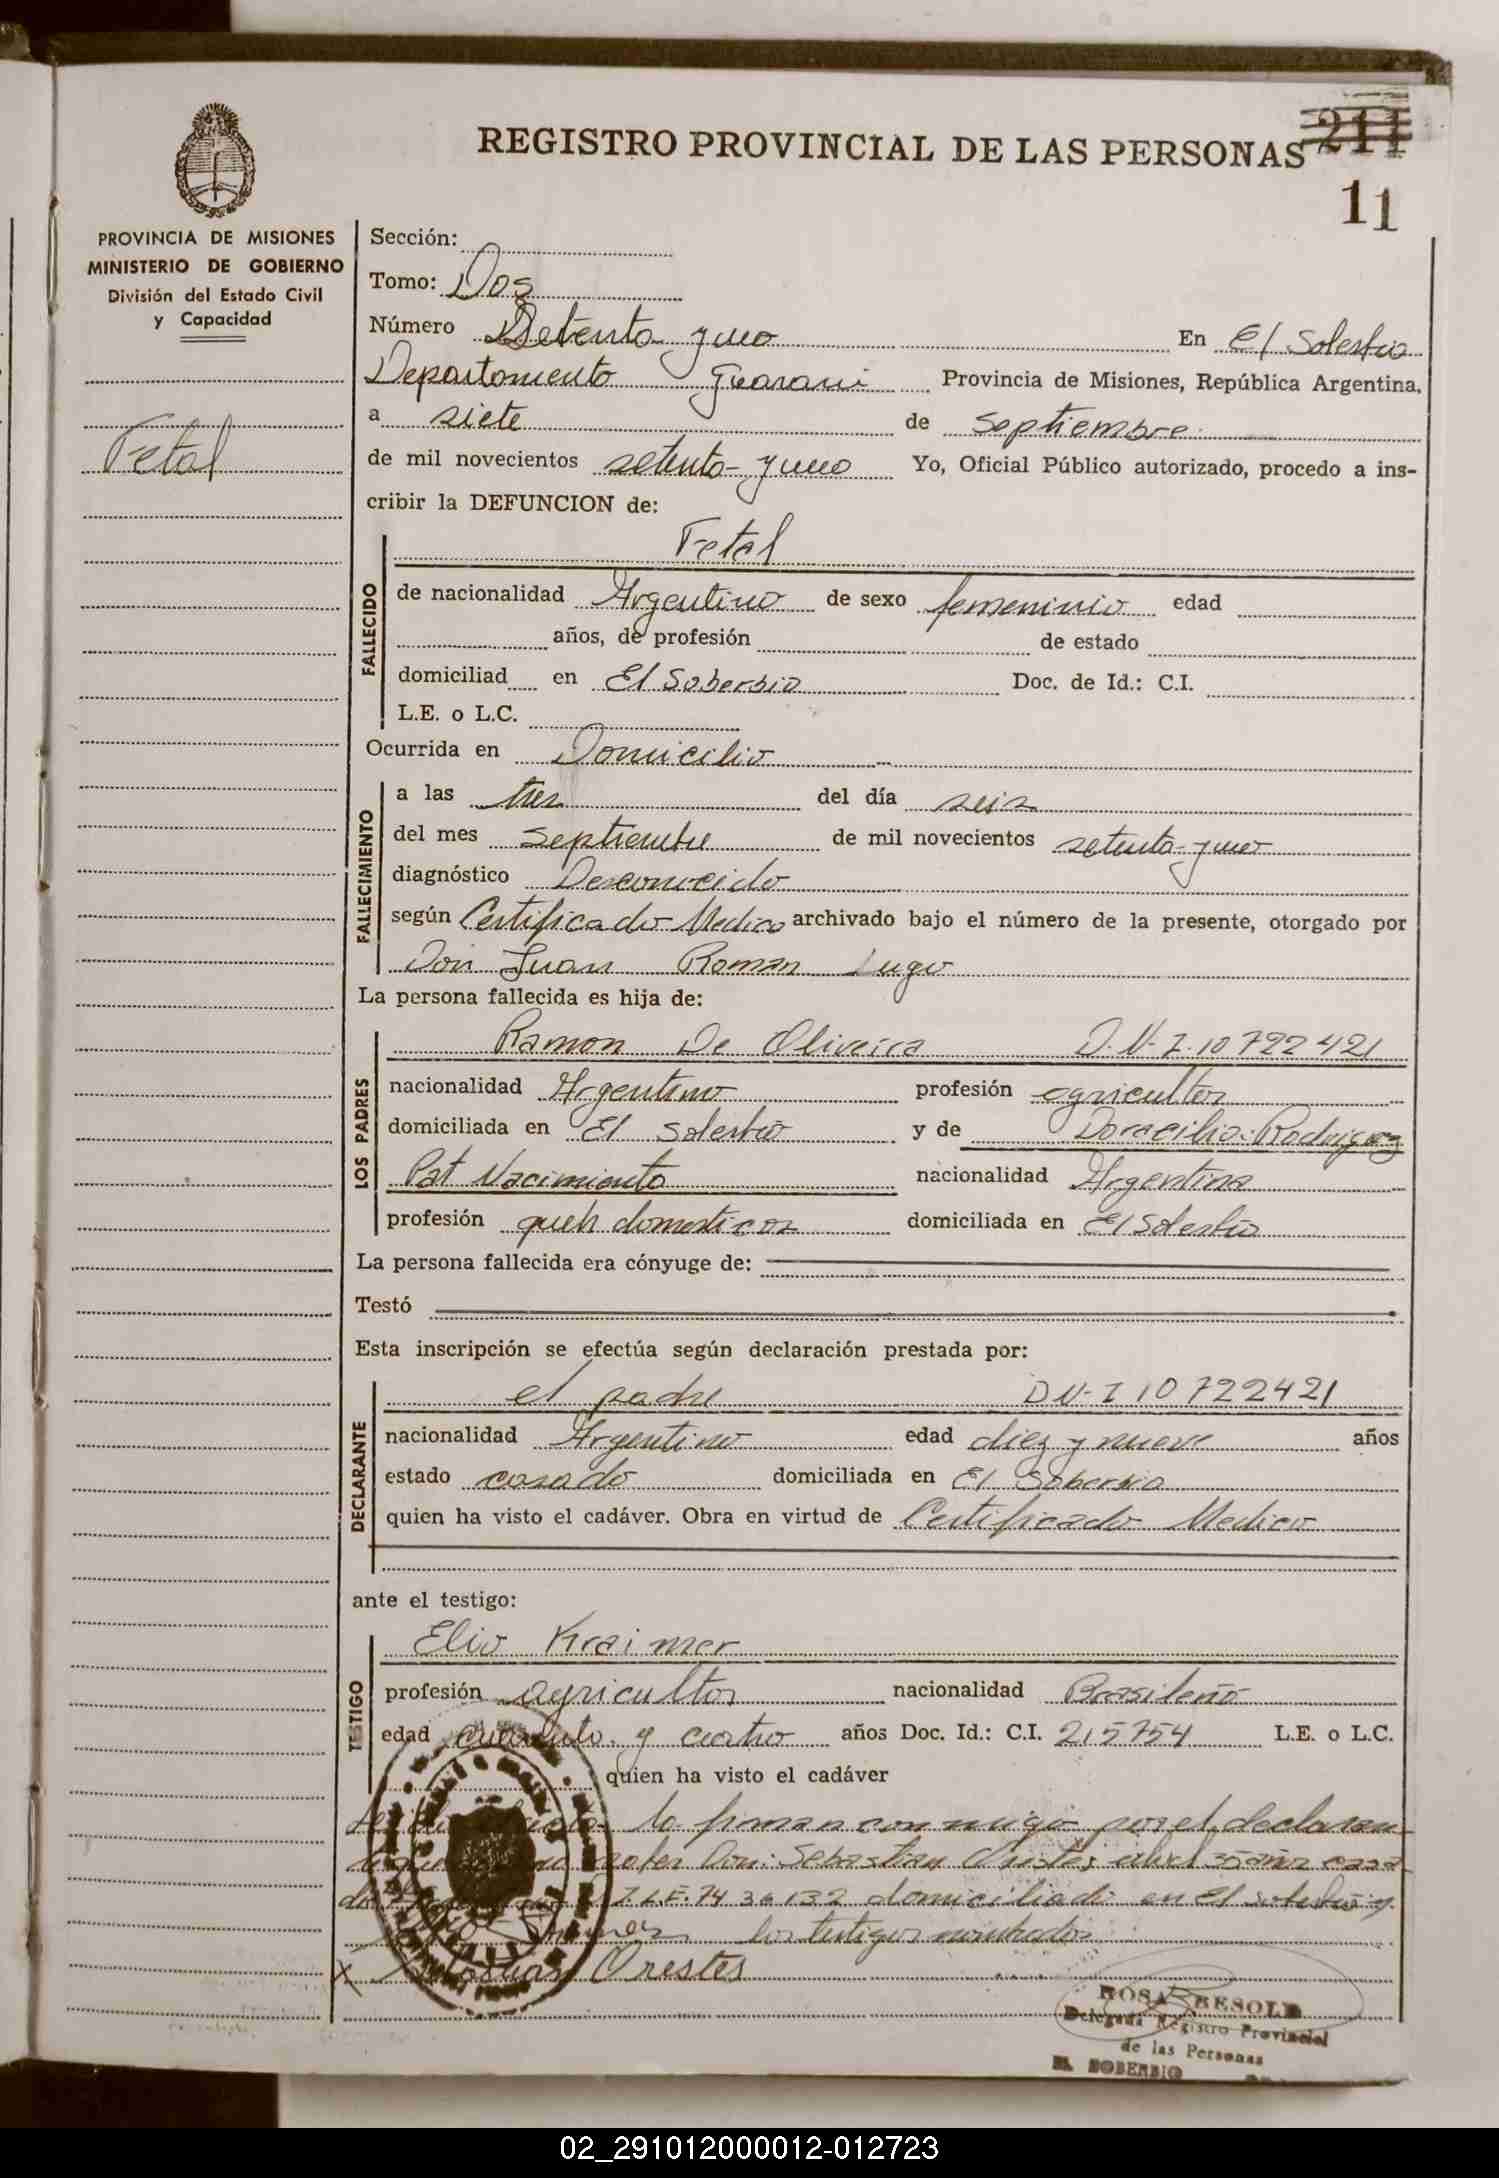 REGISTRO PROVINCIAL DE LAS PERSONAS 211
11
PROVINCIA DE MISIONES
MINISTERIO DE GOBIERNO
División del Estado Civil
y Capacidad
Fetal
Sección:
Tomo: Dos
Número Setenta y uno En El Soberbio
Departamento Guarani Provincia de Misiones, República Argentina,
a siete de Septiembre
de mil novecientos setenta y uno Yo, Oficial Público autorizado, procedo a ins-
cribir la DEFUNCION de:
Fetal
FALLECIDO
de nacionalidad Argentino de sexo femeninio edad
años, de profesión de estado
domiciliad en El Soberbio Doc. de Id.: C.I.
L.E. o L.C.
Ocurrida en Domicilio
FALLECIMIENTO
a las tres del día seis
del mes Septiembre de mil novecientos setenta y uno
diagnóstico Desconocido
según Certificado Medico archivado bajo el número de la presente, otorgado por
Don Juan Roman Lugo
La persona fallecida es hija de:
LOS PADRES
Ramon De Oliveira D.N.I. 10722421
nacionalidad Argentino profesión agricultor
domiciliada en El Soberbio y de Rodriguez
Pat Nacimiento nacionalidad Argentina
profesión queh domesticos domiciliada en El Soberbio
La persona fallecida era cónyuge de:
Testó
Esta inscripción se efectúa según declaración prestada por:
DECLARANTE
el padre D N-I 10722421
nacionalidad Argentino edad diez y nueve años
estado casado domiciliada en El Soberbio
quien ha visto el cadáver. Obra en virtud de Certificado Medico
ante el testigo:
TESTIGO
Elio Kraimer
profesión agricultor nacionalidad Brasileño
edad cuarenta y cuatro años Doc. Id.: C.I. 215754 L.E. o L.C.
quien ha visto el cadáver
la firman con migo por el declaran
Don: Sebastian Orestes 35 años casa
7436132 domiciliado en El Soberbio y
los testigos nombrados
X Sebastian Orestes
ROSA BESOLD
Delegada Registro Provincial
de las Personas
EL SOBERBIO
02_291012000012-012723